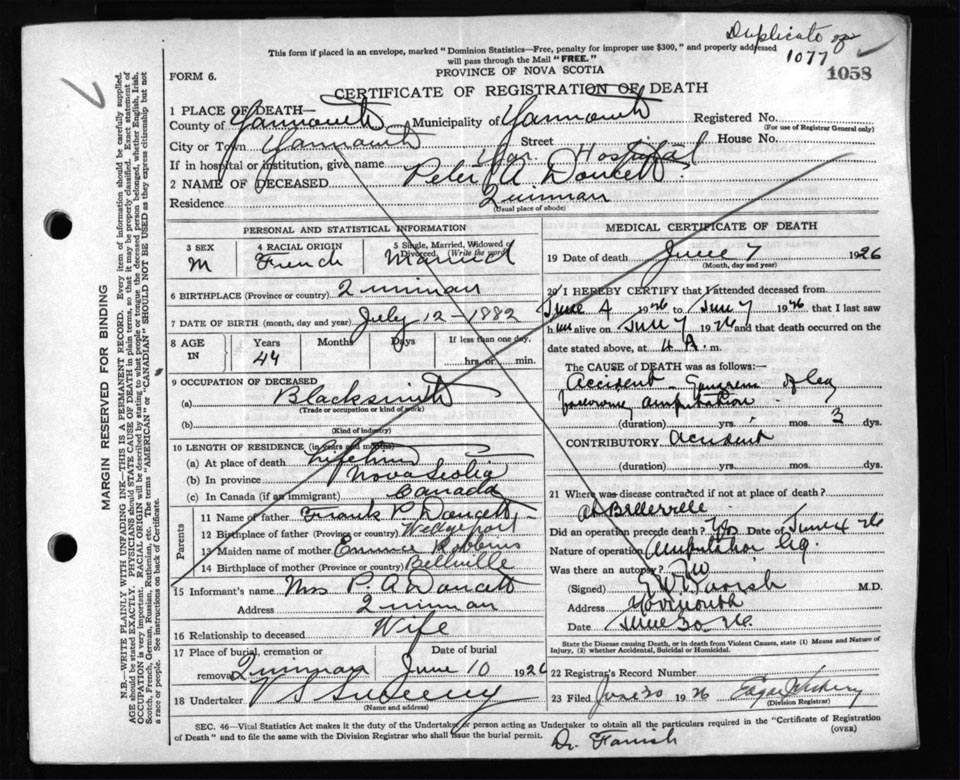 Duplicate of
1077
1058
This form if placed in an envelope, marked "Dominion Statistics—Free, penalty for improper use $300," and properly addressed
will pass through the Mail "FREE."
PROVINCE OF NOVA SCOTIA
FORM 6.
CERTIFICATE OF REGISTRATION OF DEATH
MARGIN RESERVED FOR BINDING
N.B.—WRITE PLAINLY WITH UNFADING INK—THIS IS A PERMANENT RECORD. Every item of information should be carefully supplied.
AGE should be stated EXACTLY. PHYSICIANS should STATE CAUSE OF DEATH in plain terms, so that it may be properly classified. Exact statement of
OCCUPATION is very important. RACIAL ORIGIN will be described by stating to what people or tongue the deceased person belonged, whether English, Irish,
Scotch, French, German, Russian, Ruthenian, etc. The terms "AMERICAN" or "CANADIAN" SHOULD NOT BE USED as they express citizenship but not
a race or people. See instructions on back of Certificate.
1 PLACE OF DEATH—
County of Yarmouth Municipality of Yarmouth Registered No.
(For use of Registrar General only)
City or Town Yarmouth Street House No.
If in hospital or institution, give name Yar. Hospital
2 NAME OF DECEASED Peter A Doucett
Residence Quinnan
(Usual place of abode)
PERSONAL AND STATISTICAL INFORMATION
3 SEX M
4 RACIAL ORIGIN French
5 Single, Married, Widowed or Divorced (Write the word) Married
6 BIRTHPLACE (Province or country) Quinnan
7 DATE OF BIRTH (month, day and year) July 12 - 1882
8 AGE IN Years 44 Months Days If less than one day, hrs. or min.
9 OCCUPATION OF DECEASED
(a) Blacksmith
(Trade or occupation or kind of work)
(b)
(Kind of industry)
10 LENGTH OF RESIDENCE (in years and months)
(a) At place of death Lifetime
(b) In province Nova Scotia
(c) In Canada (if an immigrant) Canada
Parents
11 Name of father Frank P. Doucett
12 Birthplace of father (Province or country) Wedgeport
13 Maiden name of mother
14 Birthplace of mother (Province or country) Bellville
15 Informant's name Mrs P. A Doucett
Address Quinnan
16 Relationship to deceased Wife
17 Place of burial, cremation or removal Quinnan Date of burial June 10 1926
18 Undertaker V S Sweeny
(Name and address)
MEDICAL CERTIFICATE OF DEATH
19 Date of death June 7 1926
(Month, day and year)
20 I HEREBY CERTIFY that I attended deceased from
June 4 1926 to June 7 1926 that I last saw
him alive on June 7 1926 and that death occurred on the
date stated above, at 4 A. m.
The CAUSE OF DEATH was as follows:—
Accident - Gangrene of leg
following amputation
(duration) yrs. mos. 3 dys.
CONTRIBUTORY Accident
(duration) yrs. mos. dys.
21 Where was disease contracted if not at place of death?
At Belleville
Did an operation precede death? Yes Date of June 4 26
Nature of operation Amputation leg.
Was there an autopsy? No
(Signed) M.D.
Address Yarmouth
Date June 30. 26
State the Disease causing Death, or in death from Violent Causes, state (1) Means and Nature of
Injury, (2) whether Accidental, Suicidal or Homicidal.
22 Registrar's Record Number
23 Filed June 30 1926
(Division Registrar)
SEC. 46—Vital Statistics Act makes it the duty of the Undertaker or person acting as Undertaker to obtain all the particulars required in the "Certificate of Registration
of Death" and to file the same with the Division Registrar who shall issue the burial permit.
(OVER)
Dr. Farish